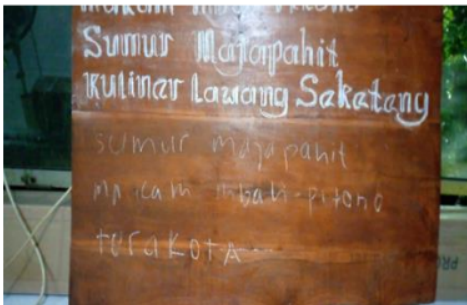 Sumur Majapahit
Kulinar Lawang Sakatang
sumur majapahit
mbah-pitono
terakota